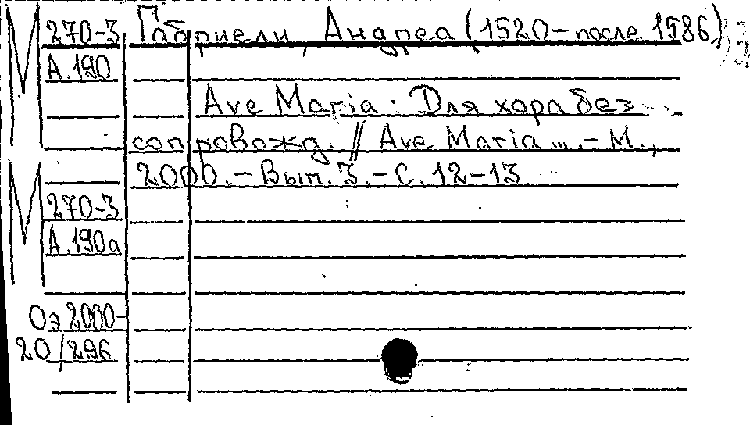 М 270-3 Габриели, Андреа (1520 - после 1586)
А.190
Ave Maria : Для хора без
сопровожд. // Ave Maria ... - М.,
2000. - Вып. 3. - С. 12-13
М 270-3
А.190а
Оэ 2000-
20/296